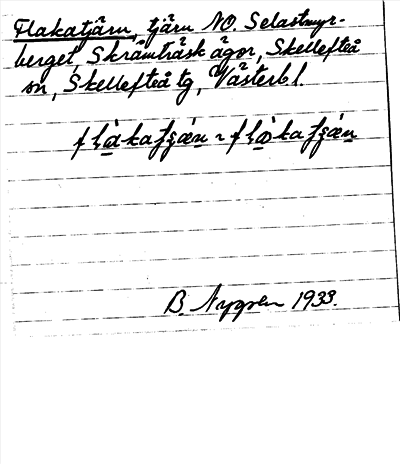 Flakatjärn, tjärn NO Selastmyr-
berget, Skråmträsk ägor, Skellefteå
sn, Skellefteå tg, Västerb l.
B. Nygren 1933.